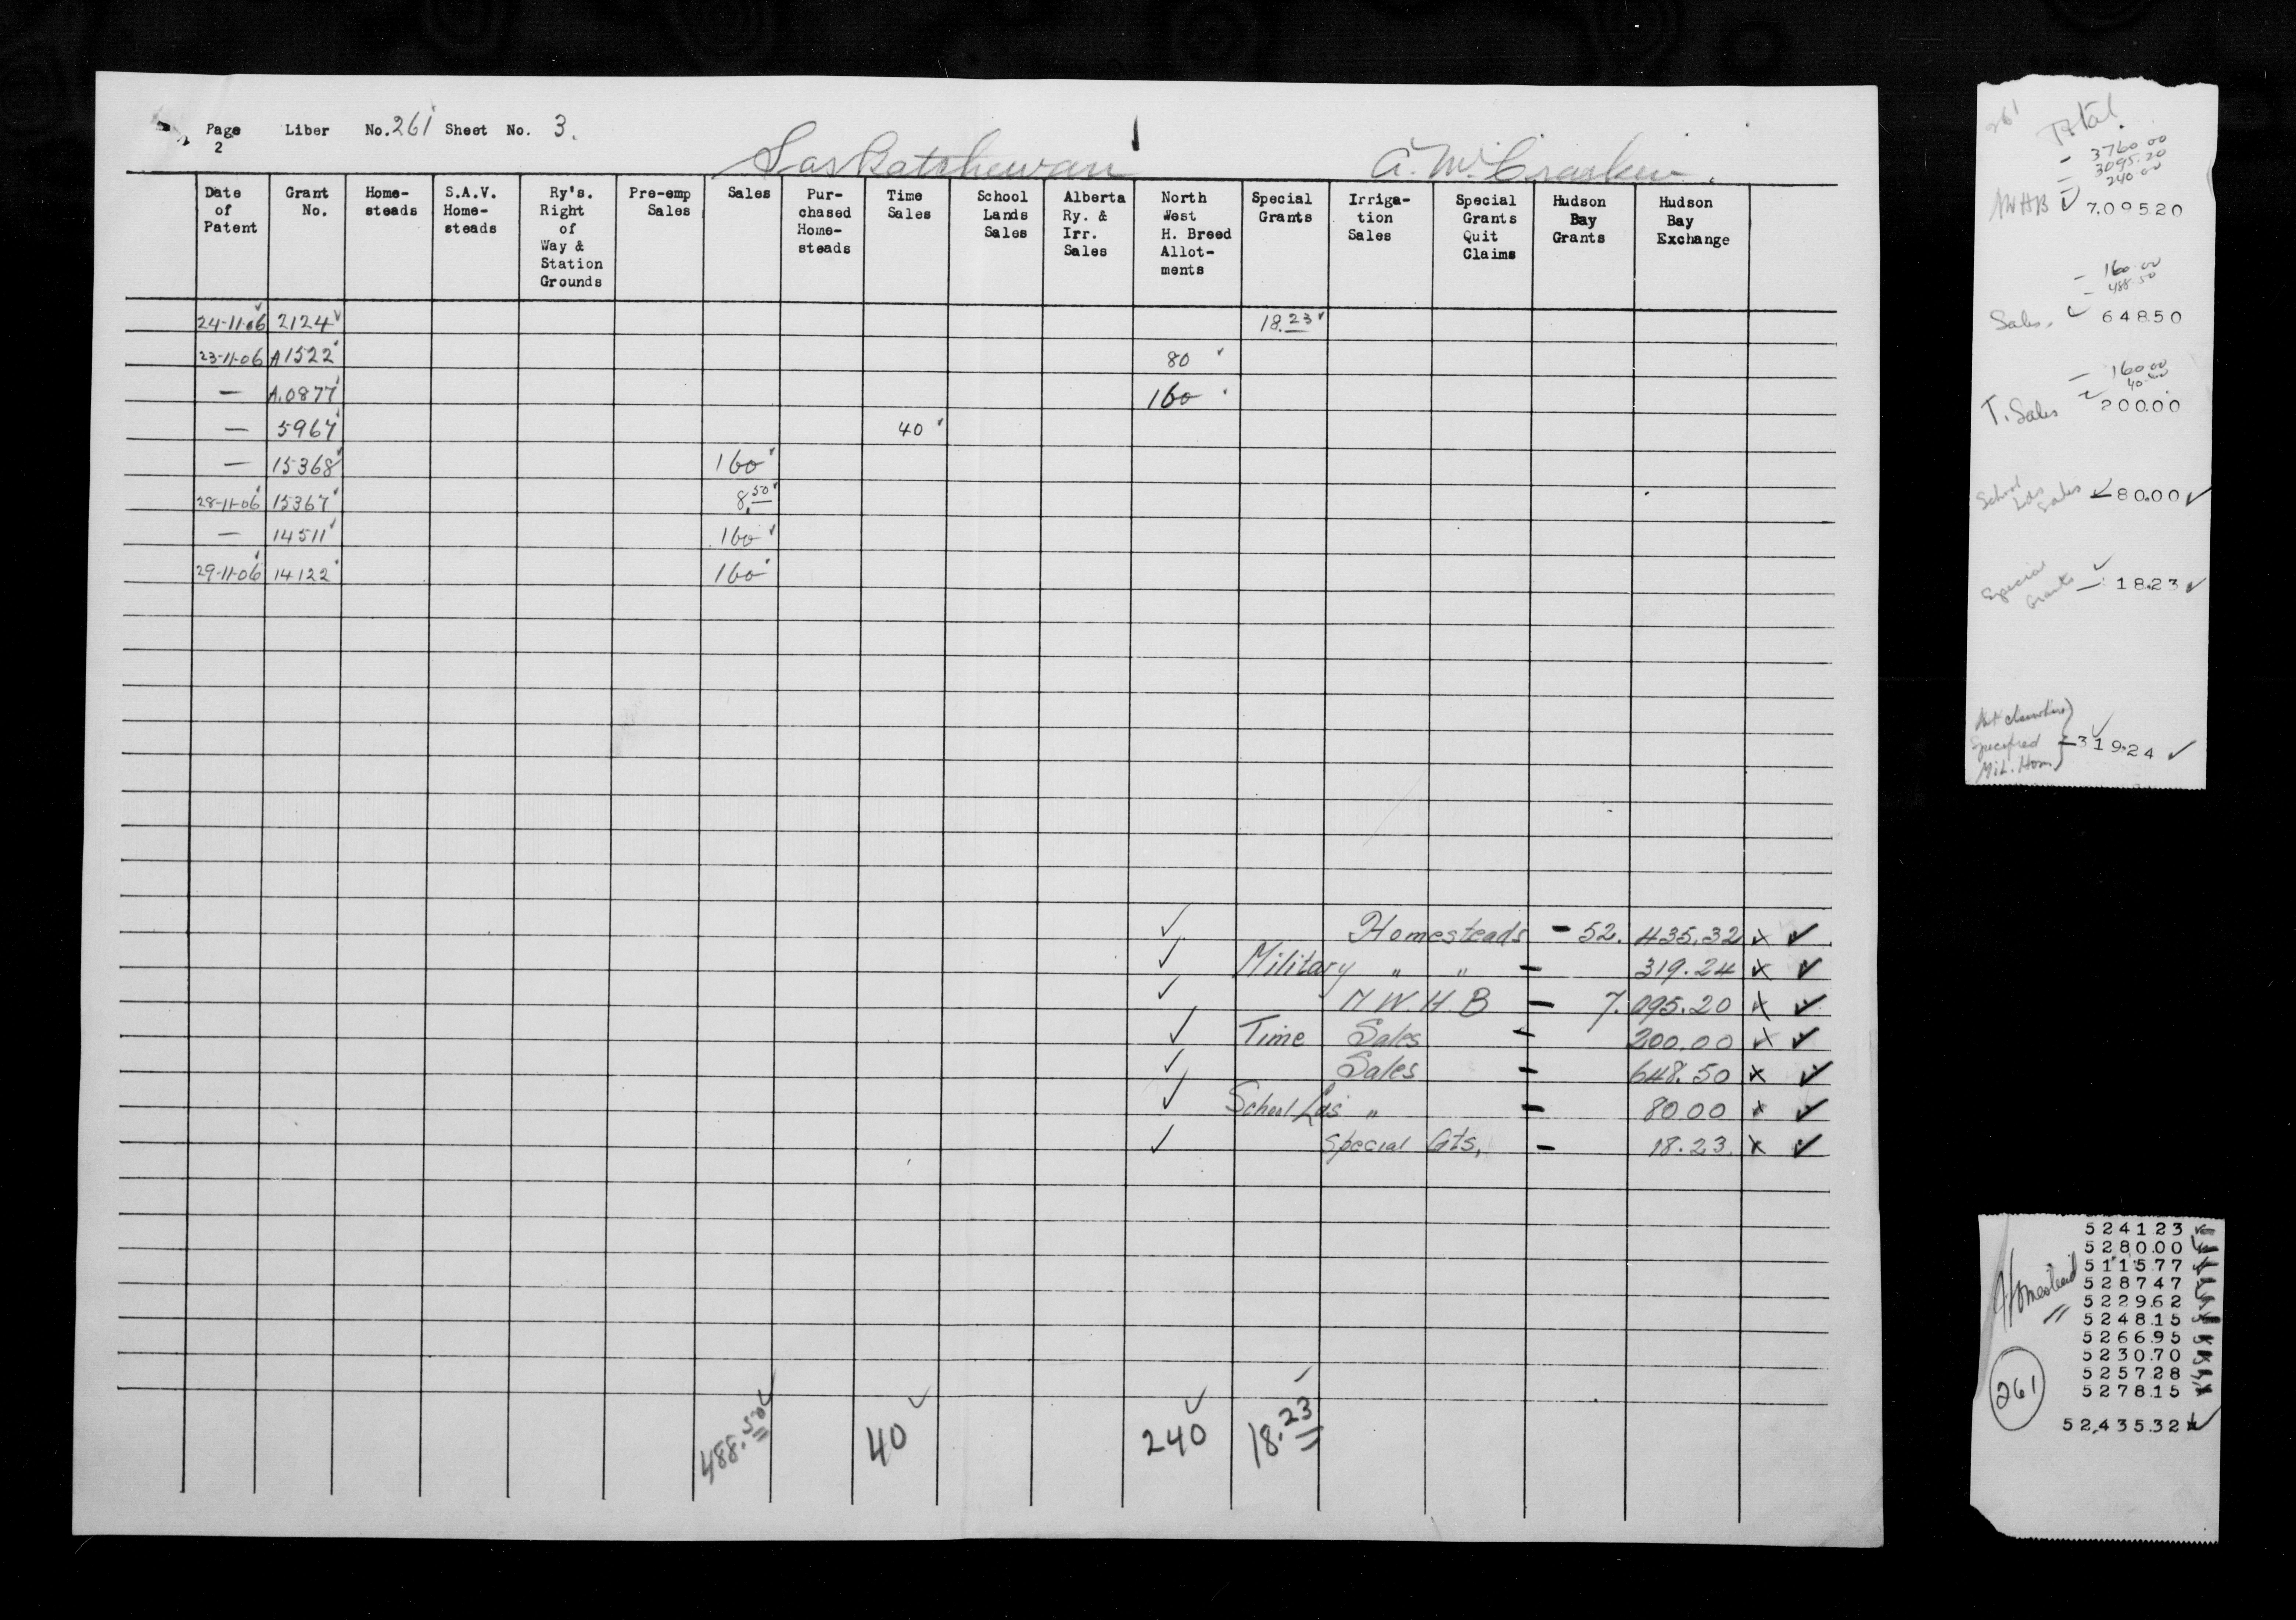 Page 2 Liber No. 261 Sheet No. 3.
Saskatchewan
Date of Patent
Grant No.
Home-steads
S.A.V. Home-steads
Ry's. Right of Way & Station Grounds
Pre-emp Sales
Sales
Pur-chased Home-steads
Time Sales
School Lands Sales
Alberta Ry. & Irr. Sales
North West H. Breed Allot-ments
Special Grants
Irriga-tion Sales
Special Grants Quit Claims
Hudson Bay Grants
Hudson Bay Exchange
24-11-06 2124 18.23
23-11-06 A1522 80
— A.0877 160
— 5967 40
— 15368 160
28-11-06 15367 8.50
— 14511 160
29-11-06 14122 160
Homesteads - 52.435.32 x
Military " " - 319.24 x
N.W.H.B - 7.095.20 x
Time Sales - 200.00 x
Sales - 648.50 x
School Lds " - 80.00 x
Special Gts. - 18.23 x
488.50 40 240 18.23
261
Total
- 3760.00
- 3095.20
- 240.00
NWHB 7,095.20
- 160.00
- 488.50
Sales. 648.50
- 160.00
- 40.00
T. Sales 200.00
School Lds Sales 80.00
Special Grants - 18.23
Not elsewhere
Specified } - 319.24
Mil. Hom.
5241.23
5280.00
5115.77
5287.47
5229.62
5248.15
5266.95
5230.70
5257.28
5278.15
52,435.32
Homestead
261